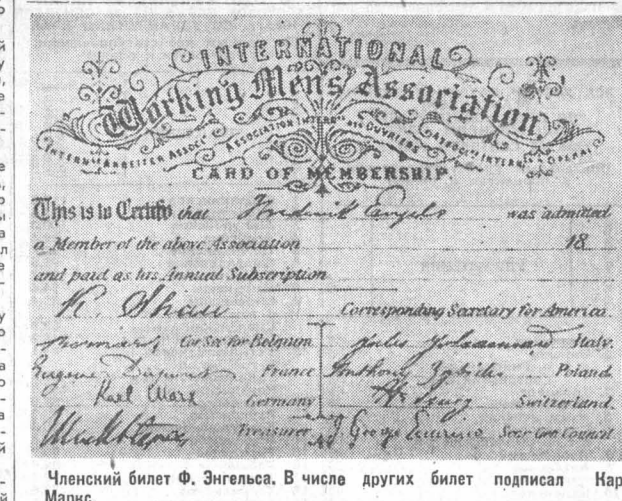 INTERNATIONAL
Working Men's Association.
INTERN. ARBEITER ASSOC. ASSOCIATION INTERN. DES OUVRIERS ASSOC. INTERN. OPERAI
CARD OF MEMBERSHIP.
This is to Certify that Frederick Engels was admitted
a Member of the above Association 18
and paid as his Annual Subscription
R. Shaw Corresponding Secretary for America.
Cor Sec for Belgium Jules Johannard Italy.
Eugene Dupont France Anthony Zabicki Poland
Karl Marx Germany H. Jung Switzerland.
Treasurer J. George Eccarius Secr Gen Council
Членский билет Ф. Энгельса. В числе других билет подписал Кар
Маркс.